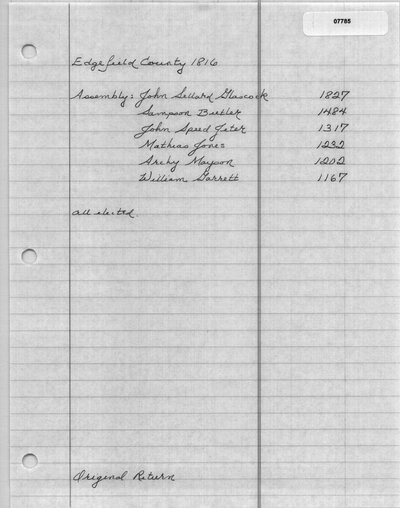 07785
Edgefield County 1816
Assembly: John Sellard Glascock 1827
Sampson Butler 1484
John Speed Jeter 1317
Mathias Jones 1232
Archy Mayson 1202
William Garrett 1167
all elected.
Original Return